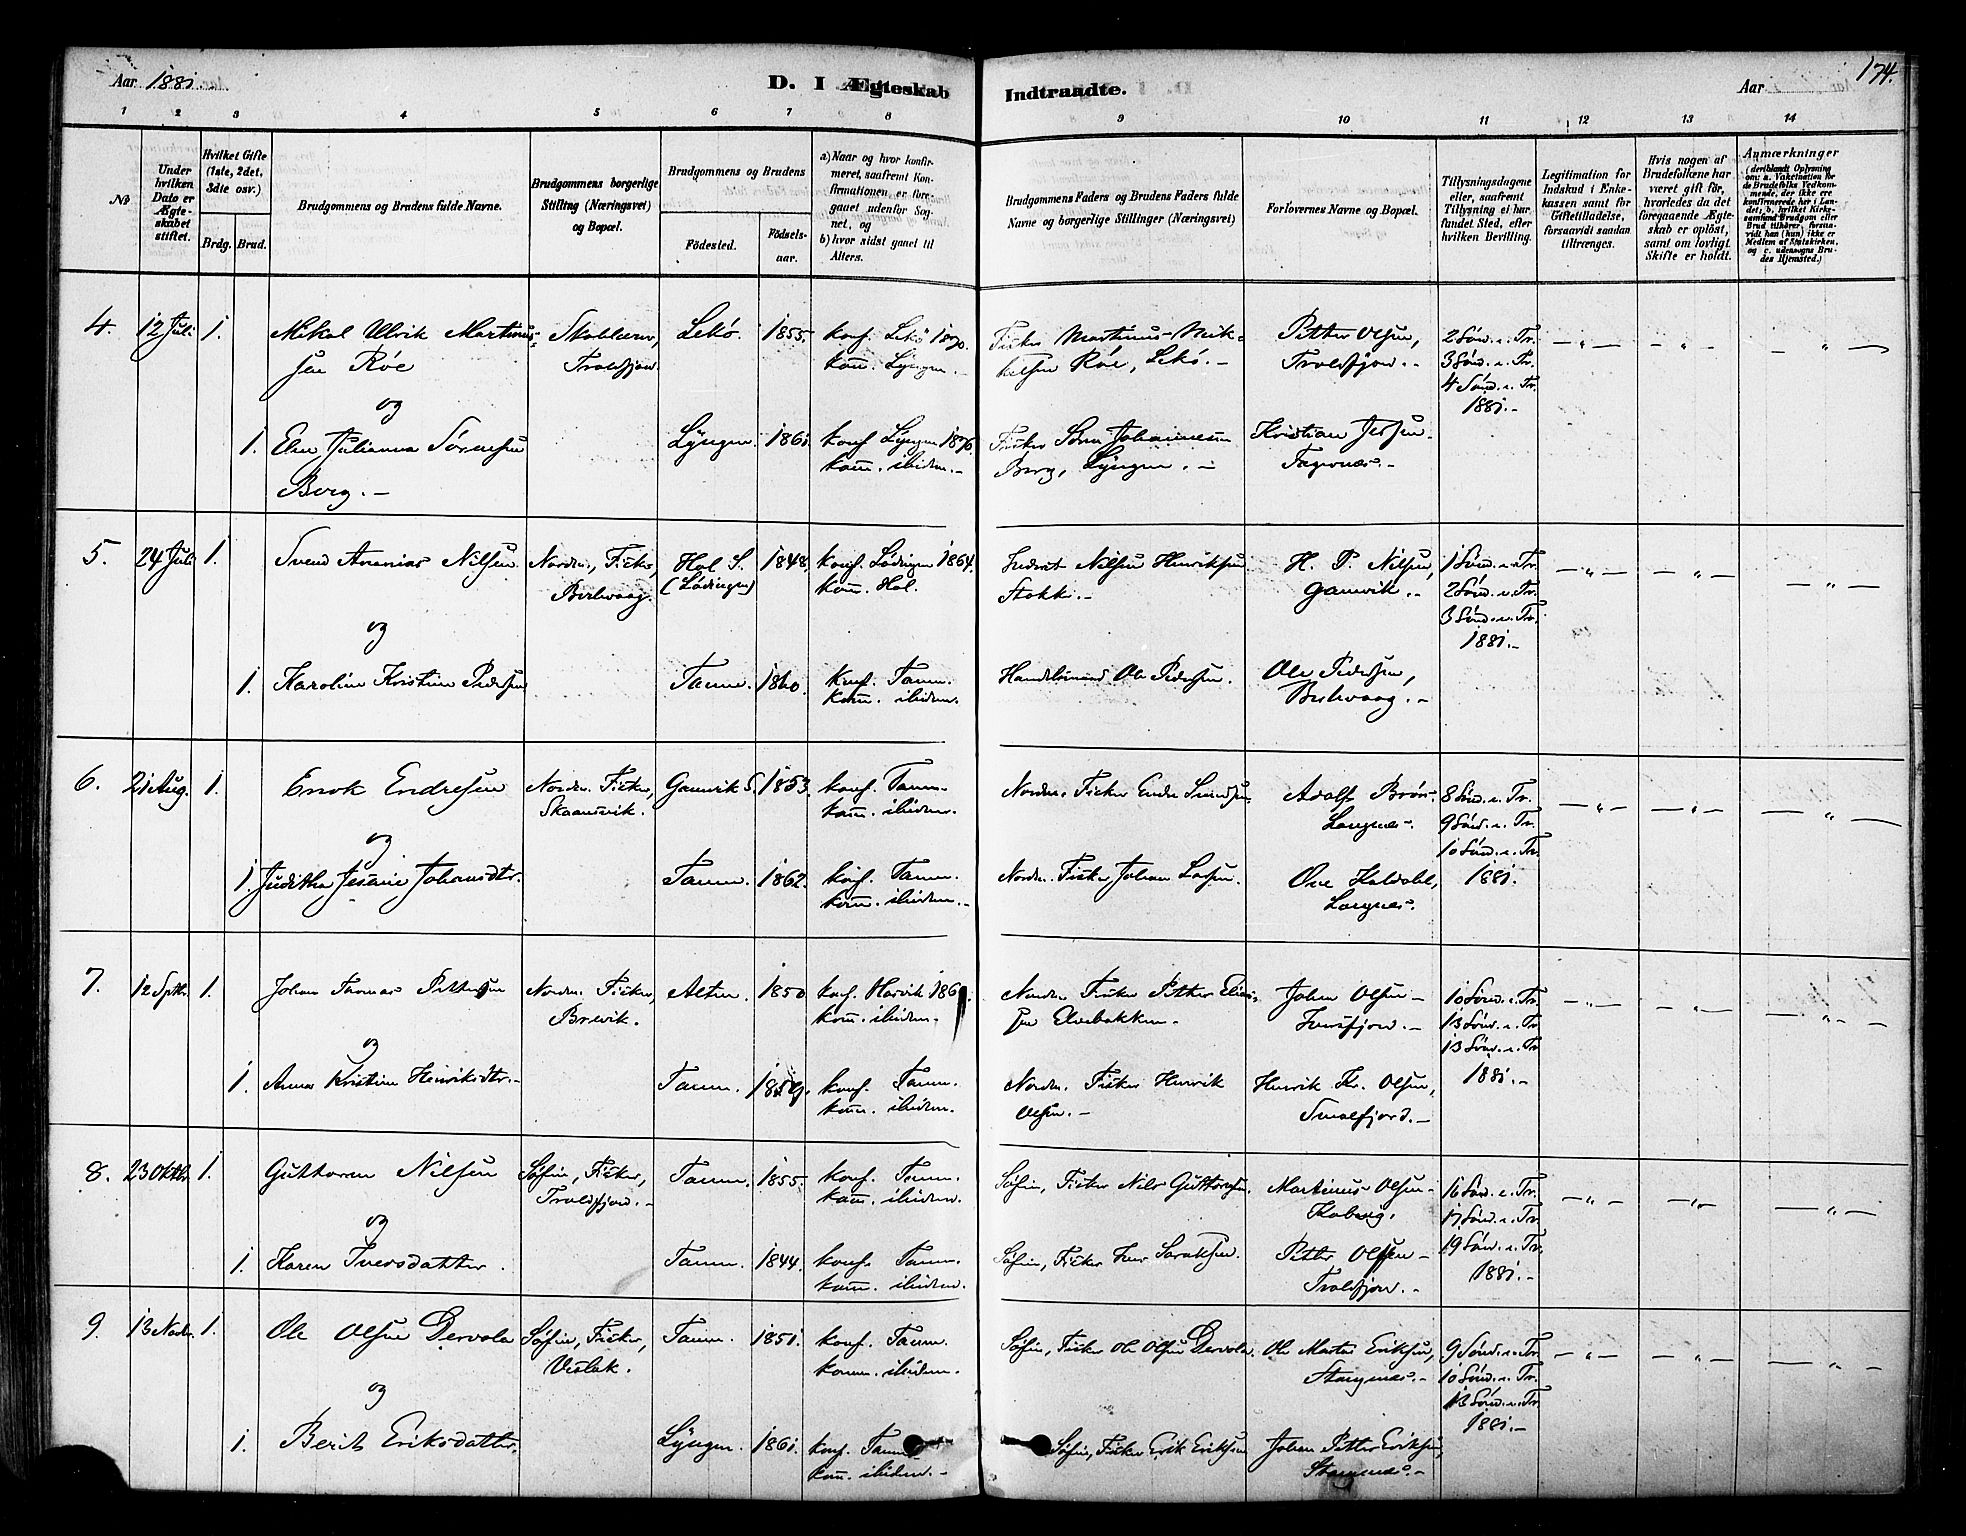 Aar 1881.
D. I Ægteskab Indtraadte.
Aar
174.
1 2 3 4 5 6 7 8 9 10 11 12 13 14
No
Under hvilken Dato er Ægteskabet stiftet.
Hvilket Gifte (1ste, 2det, 3die osv.)
Brdg. Brud.
Brudgommens og Brudens fulde Navne.
Brudgommens borgerlige Stilling (Næringsvei) og Bopæl.
Brudgommens og Brudens
Fødested.
Fødselsaar.
a) Naar og hvor konfirmeret, saafremt Konfirmationen er foregaaet udenfor Sognet, og
b) hvor sidst gaaet til Alters.
Brudgommens Faders og Brudens Faders fulde Navne og borgerlige Stillinger (Næringsvei)
Forlovernes Navne og Bopæl.
Tillysningsdagene eller, saafremt Tillysning ei har fundet Sted, efter hvilken Bevilling.
Legitimation for Indskud i Enkekassen samt for Giftetilladelse, forsaavidt saadan tiltrænges.
Hvis nogen af Brudefolkene har været gift før, hvorledes da det foregaaende Ægteskab er opløst, samt om lovligt Skifte er holdt.
Anmærkninger
4. 12 Juli 1. Mikal Ulrik Martinus- Lekø. 1855. konf. Lekö 1870. Fisker Martinus Mik- Petter Olsen, 2 Sönd. e. Tr.
sen Røe Troldfjord. kom. Lyngen.- kelsen Røe, Lekö.- Troldfjord.- 3 Sönd. e. Tr.
og 4 Sönd. e. Tr.
1881.-
1. Elen Julianna Sørensen Lyngen. 1861. konf. Lyngen 1876. Fisker Sören Johannesen Kristian Jessen
Berg.- kom. ibidem.- Berg, Lyngen.- Fagernæs.-
5. 24 Juli 1. Svend Ananias Nilsen Nordm., Fisker, Hol S. 1848. konf. Lödingen 1864. Inderst Nilsen Henriksen H. P. Nilsen, 1 Sönd. e. Tr.
Berlevaag. (Lödingen) kom. Hol. Stokke.- Gamvik.- 2 Sönd. e. Tr.
og 3 Sönd. e. Tr.
1881.-
1. Karoline Kristine Pedersen Tanen. 1860. konf. Tanen. Handelsmand Ole Pedersen. Ole Pedersen,
kom. ibidem. Berlevaag.-
6. 21 Aug. 1. Enok Endresen Nordm. Fisker, Gamvik S. 1853. konf. Tanen. Nordm. Fisker Endre Adolf Brön. 8 Sönd. e. Tr.
kom. ibidem. Langnæs. 9 Sönd. e. Tr.
og 10 Sönd. e. Tr.
1. Juditha Johansdtr. Tanen. 1862. konf. Tanen. Nordm. Fisker Johan Larsen. Ove 1881.
kom. ibidem.- Langnæs.
7. 12 Sptbr. 1. Johan Tomas Pettersen Nordm. Fisker, Alten. 1850. konf. Nordm. Fisker Petter Elias- Johan Olsen- 10 Sönd. e. Tr.
Brevik. kom. ibidem. sen Elvebakken.- 13 Sönd. e. Tr.
og 13 Sönd. e. Tr.
1. Anna Kristine Henriksdtr.- Tanen. 1859. konf. Tanen. Nordm. Fisker Henrik Henrik Kr. Olsen, 1881.-
kom. ibidem. Olsen.- Smalfjord.-
8. 23 Oktbr. 1. Guttorm Nilsen Søfin, Fisker, Tanen. 1855. konf. Tanen. Søfin, Fisker Nils Guttormsen. Martinus Olsen- 16 Sönd. e. Tr.
Troldfjord.- kom. ibidem. 17 Sönd. e. Tr.
og
1. Karen Iversdatter. Tanen. 1844. konf. Tanen. Søfin, Fisker Iver Petter Olsen- 19 Sönd. e. Tr.
kom. ibidem. Troldfjord.- 1881.-
9. 13 Novbr. 1. Ole Olsen Dervola Søfin, Fisker, Tanen. 1851. konf. Tanen. Søfin, Fisker Ole Olsen Dervola. Ole Martin Eriksen, 9 Sönd. e. Tr.
kom. ibidem. 10 Sönd. e. Tr.
og 13 Sönd. e. Tr.
1881.-
1. Berit Eriksdatter. Lyngen. 1861. konf. Tanen Søfin, Fisker Erik Eriksen Johan Petter Eriksen,
kom. ibidem.-